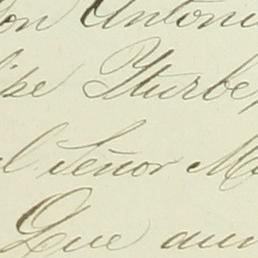 on Antoni
ipe Yturbe,
l Señor M
Que aun